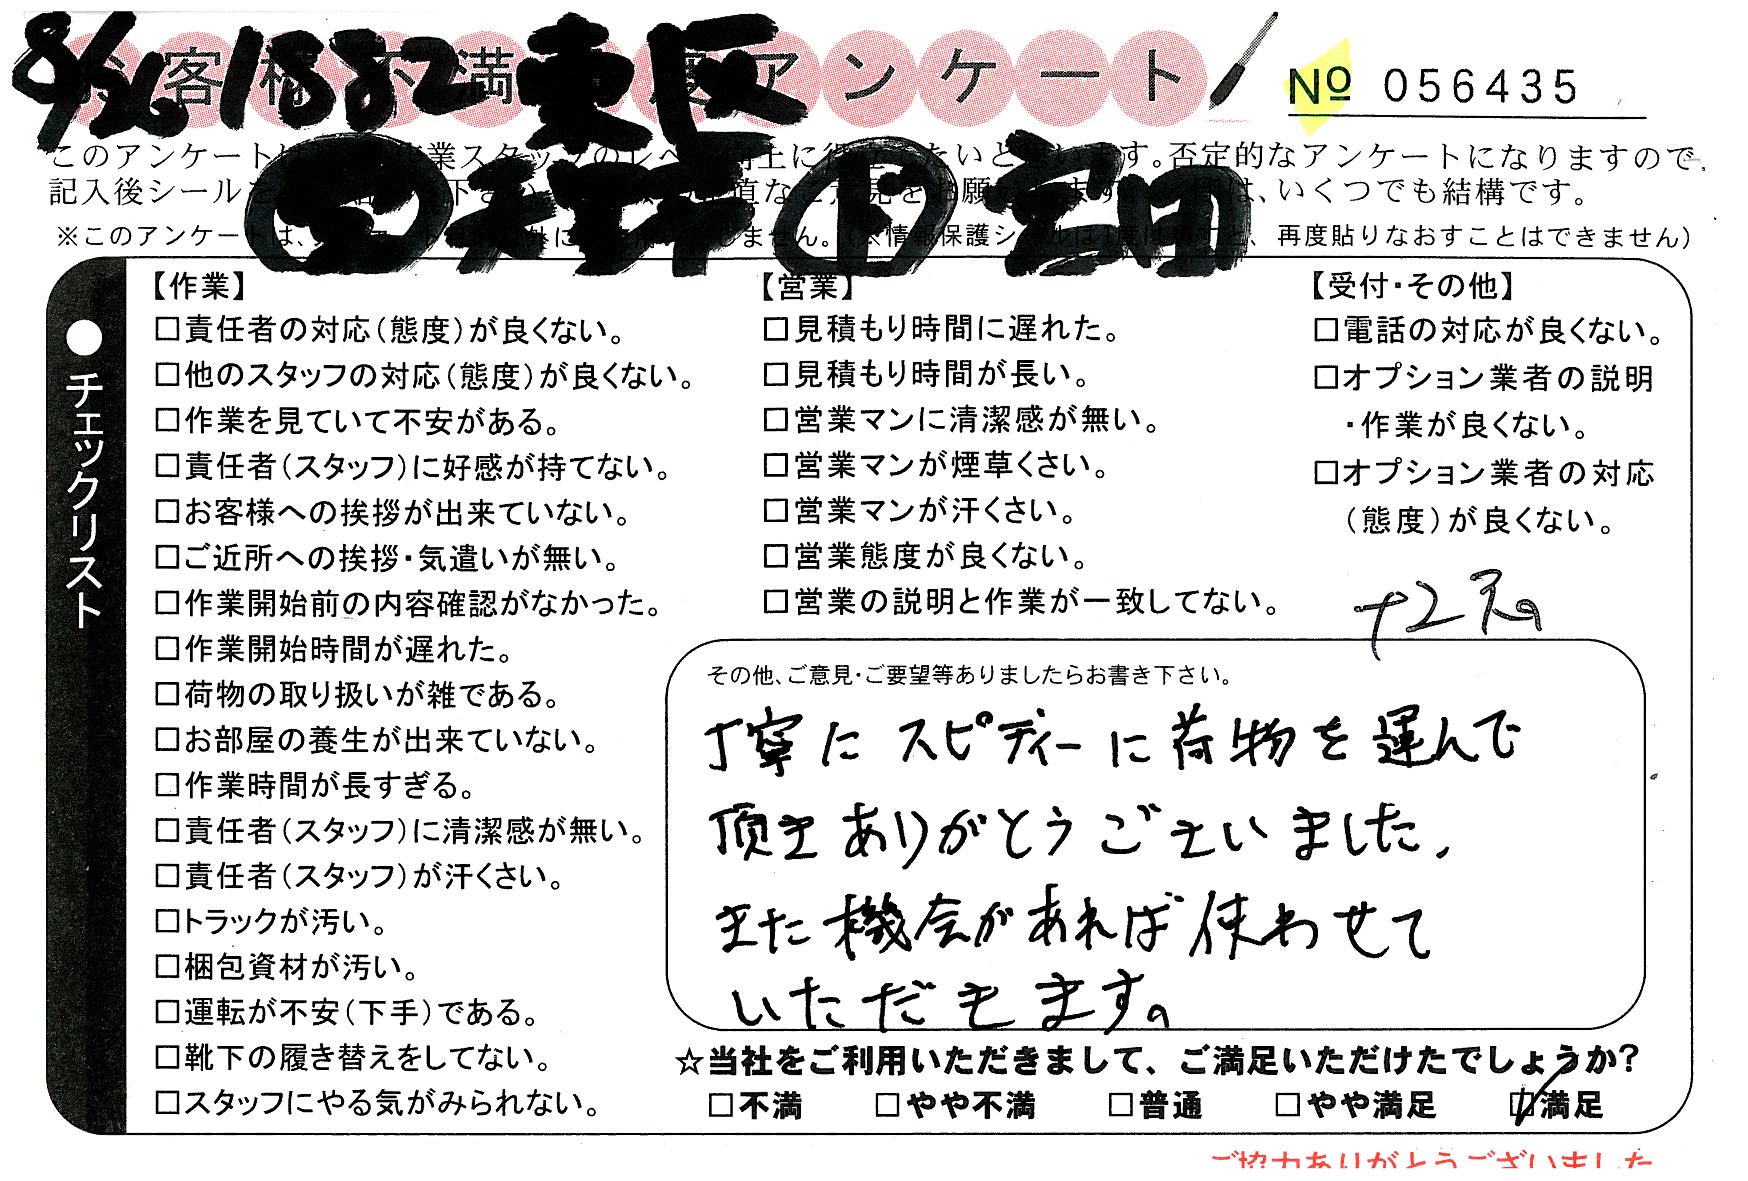 8/26 1882 東阪
お客様不満足度アンケート
№ 056435
このアンケートは 作業スタッフのレベル向上に役立てたいと思います。否定的なアンケートになりますので、
記入後シールを 下さい 直なご意見をお願いします は、いくつでも結構です。
※このアンケートは、 しません。(※情報保護シールは1度はがすと、再度貼りなおすことはできません)
上 天野 下 宮田
チェックリスト
【作業】
□責任者の対応(態度)が良くない。
□他のスタッフの対応(態度)が良くない。
□作業を見ていて不安がある。
□責任者(スタッフ)に好感が持てない。
□お客様への挨拶が出来ていない。
□ご近所への挨拶・気遣いが無い。
□作業開始前の内容確認がなかった。
□作業開始時間が遅れた。
□荷物の取り扱いが雑である。
□お部屋の養生が出来ていない。
□作業時間が長すぎる。
□責任者(スタッフ)に清潔感が無い。
□責任者(スタッフ)が汗くさい。
□トラックが汚い。
□梱包資材が汚い。
□運転が不安(下手)である。
□靴下の履き替えをしてない。
□スタッフにやる気がみられない。
【営業】
□見積もり時間に遅れた。
□見積もり時間が長い。
□営業マンに清潔感が無い。
□営業マンが煙草くさい。
□営業マンが汗くさい。
□営業態度が良くない。
□営業の説明と作業が一致してない。
【受付・その他】
□電話の対応が良くない。
□オプション業者の説明
・作業が良くない。
□オプション業者の対応
(態度)が良くない。
+2
その他、ご意見・ご要望等ありましたらお書き下さい。
丁寧に スピディーに荷物を運んで
頂きありがとうございました。
また機会があれば使わせて
いただきます。
☆当社をご利用いただきまして、ご満足いただけたでしょうか?
□不満 □やや不満 □普通 □やや満足 ☑満足
ご協力ありがとうございました